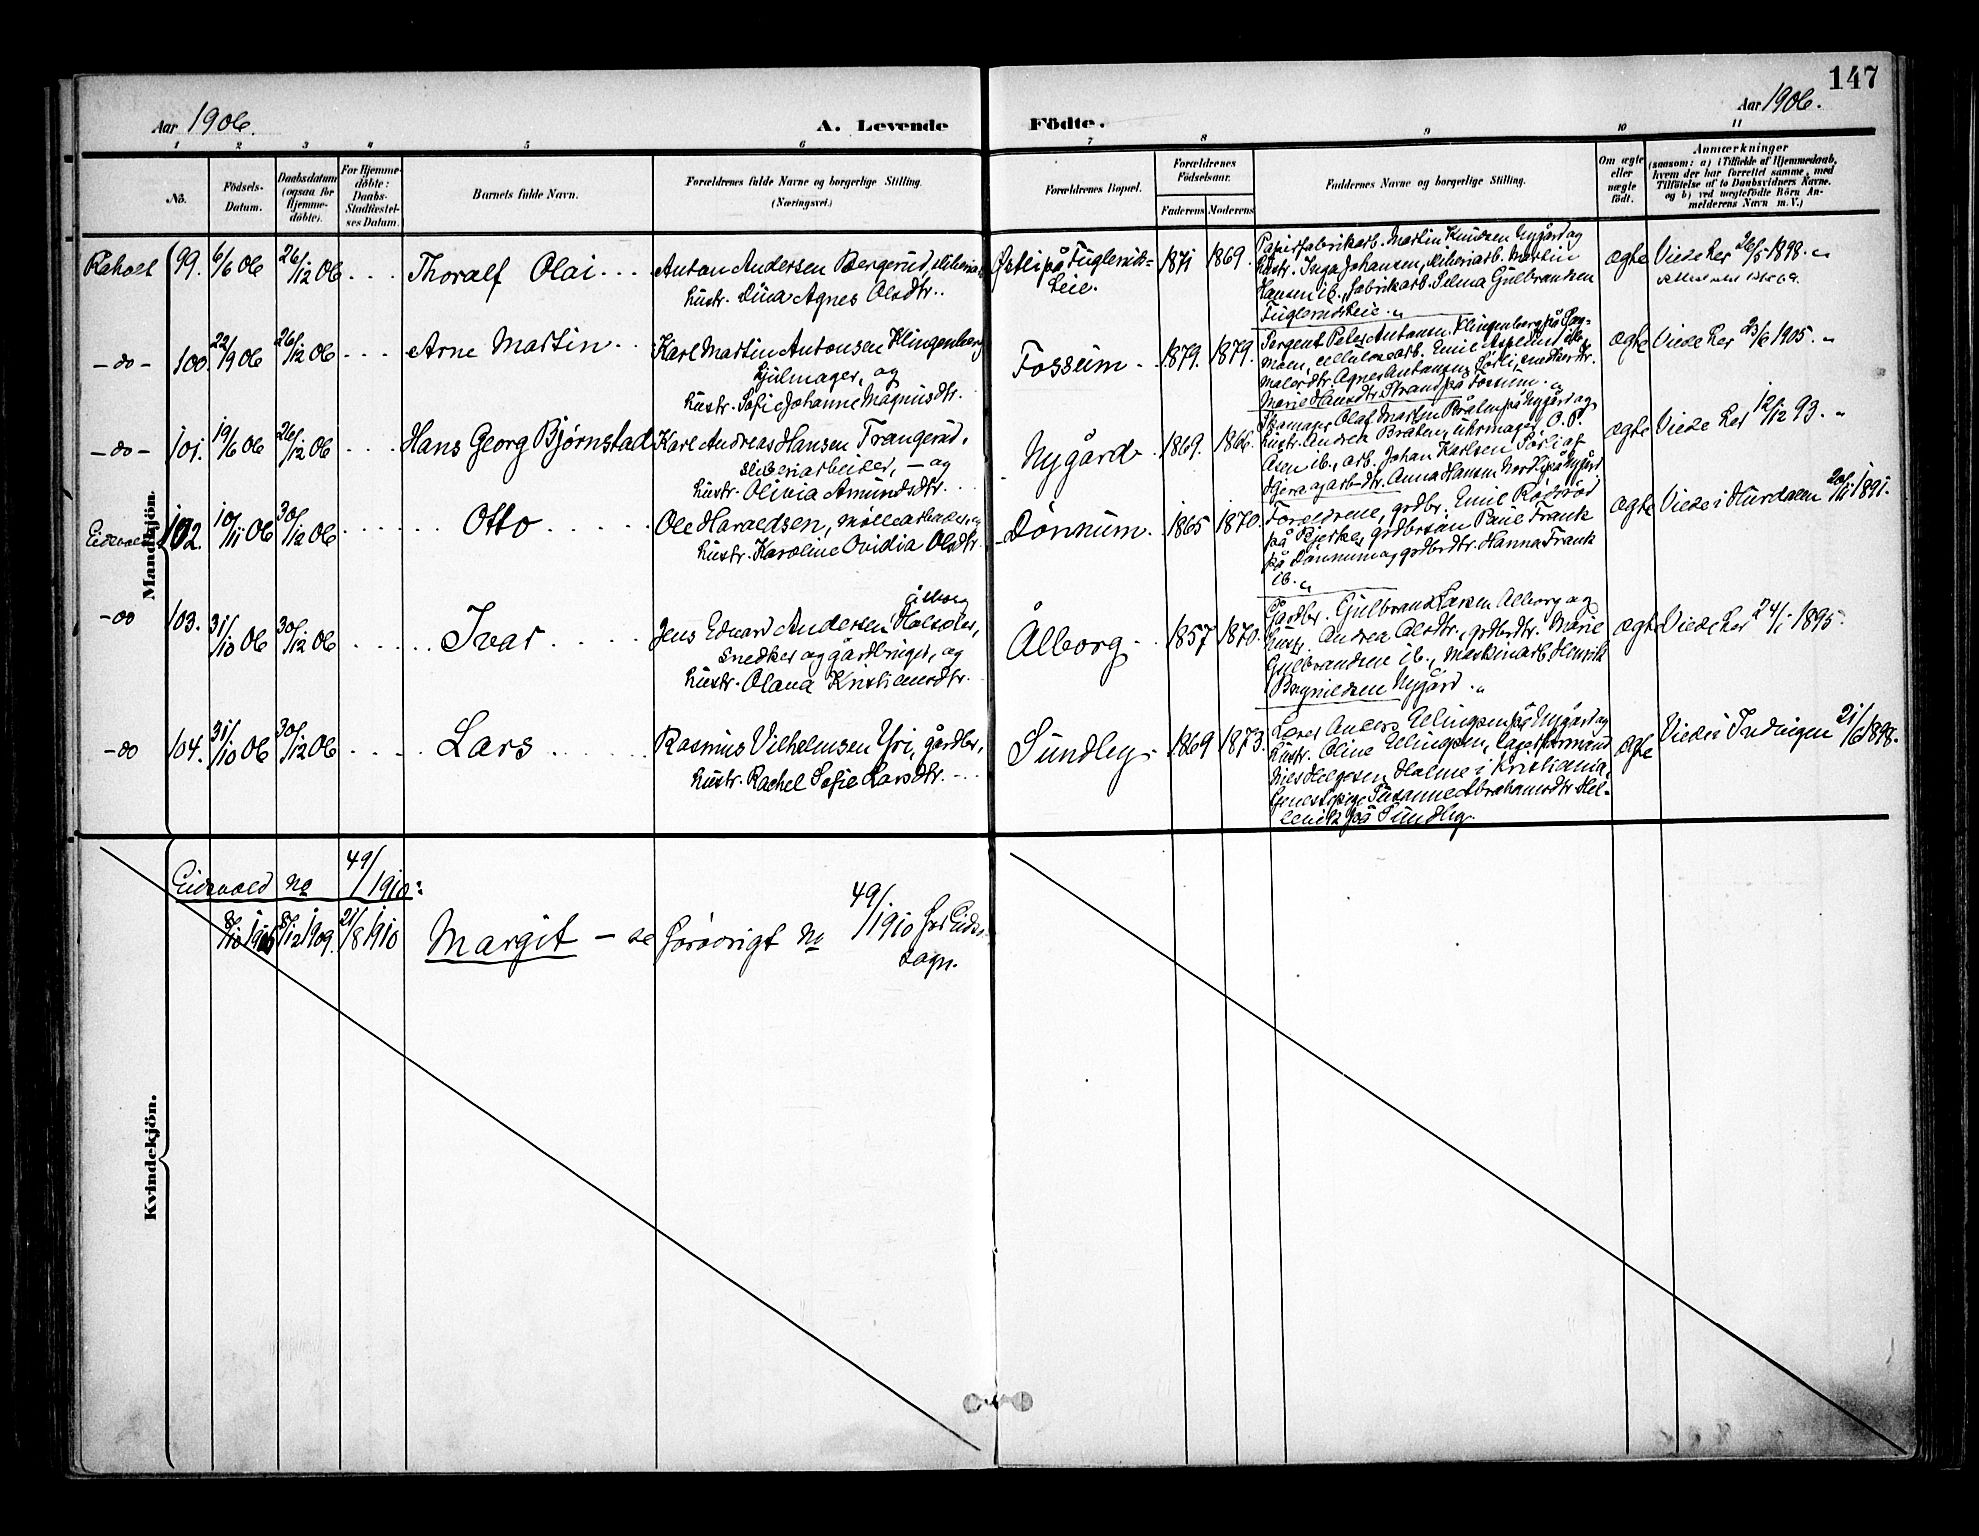 147
Aar 1906.
A. Levende Födte.
Aar 1906.
1 2 3 4 5 6 7 8 9 10 11
No.
Födsels-Datum.
Daabsdatum (ogsaa for Hjemme-döbte).
For Hjemme-döbte: Daabs-Stadfæstel-ses Datum.
Barnets fulde Navn.
Forældrenes fulde Navne og borgerlige Stilling.
(Næringsvei.)
Forældrenes Bopæl.
Forældrenes Födselsaar.
Faderens Moderens
Faddernes Navne og borgerlige Stilling.
Om ægte eller uægte födt.
Anmærkninger
(saasom: a) i Tilfælde af Hjemmedaab, hvem der har forrettet samme, med Tilföielse af to Daabsvidners Navne, og b) ved uægtefödte Börn An-melderens Navn m. V.)
Mandkjön.
Raholt 99. 6/6 06 26/12 06 Thoralf Olai
Anton Andersen Bergerud,
hustr. Agnes Olsdtr.
Østli på Fuglerüds-
eie.
1871 1869.
Papirfabrikarb. Martin Knudsen Nygård og
hustr. Inga Johansen, sliberiarb. Martin
Hansen ib., fabrikarb. Selma Gulbransen
Fuglerudseie.
ægte Viede her 26/5 1898.
-do- 100. 22/9 06 26/12 06 Arne Martin
Karl Martin Antonsen Klingenberg
hjulmager, og
hustr. Sofie Johanne Magnusdtr.
Fossum 1879. 1879.
Sergent Peter Antonsen Klingenberg på
moen, cellulosearb. Emil Asplund
malerdtr. Agnes Antonsen Sörli, snedkerdtr.
Marie Hansdtr. Strand på Fossum.
ægte Viede her 23/6 1905.
-do- 101. 19/6 06 26/12 06 Hans Georg Bjørnstad
Karl Andreas Hansen Trangerud,
sliberiarbeider, - og
hustr. Olivia Amundsdtr.
Nygård 1869. 1866.
Skomager Olaf Morten Bråten på Nygård og
hustr. Andrea Bråten, uhrmager O. P.
Åsen ib., arb. Johan Karlsen Sörli af
Hjera og arb.dtr. Anna Hansen Nordli på Nygård
ægte Viede her 12/12 93.
Eidsvold 102. 10/11 06 30/12 06 Otto
Ole Haraldsen, möllearbeider, og
hustr. Karoline Ovidia Olsdtr.
Dönnum 1865 1870.
Foreldrene, grdbr. Emil Rödsröd
på Bjerke, grdbrsön Paul Frank
på Dönnum og grdbrdtr. Hanna Frank
ib.
ægte Viede i Hurdalen 20/11 1891.
-do 103. 31/10 06 30/12 06 Ivar
Ålborg
Jens Edvard Andersen Holsæter,
snedker og gårdbruger, og
hustr. Olava Kristiansdtr.
Ålborg 1857 1870.
Gårdbr. Gulbrand Larsen Ålborg og
hustr. Andrea Olsdtr., grdbrdtr. Marie
Gulbrandsen ib., maskinarb. Henrik
Nygård.
ægte Viede her 24/1 1895.
-do 104. 31/10 06 30/12 06 Lars
Rasmus Vilhelmsen Yri, gårdbr.,
hustr. Rachel Sofie Larsdtr.
Sundby 1869 1873.
Lærer Anders Ellingsen på Nygård og
hustr. Oline Ellingsen, lagerformand
Nils Helgesen Holme i Kristiania,
Susanne Abrahamsdtr. Hel-
levik på Sundby.
ægte Viede i Indvigen 21/6 1898.
Kvindekjön.
Eidsvold No 49/1910:
21/8 1910 Margit - se forøvrigt No 49/1910 for Eidsv.
sogn.